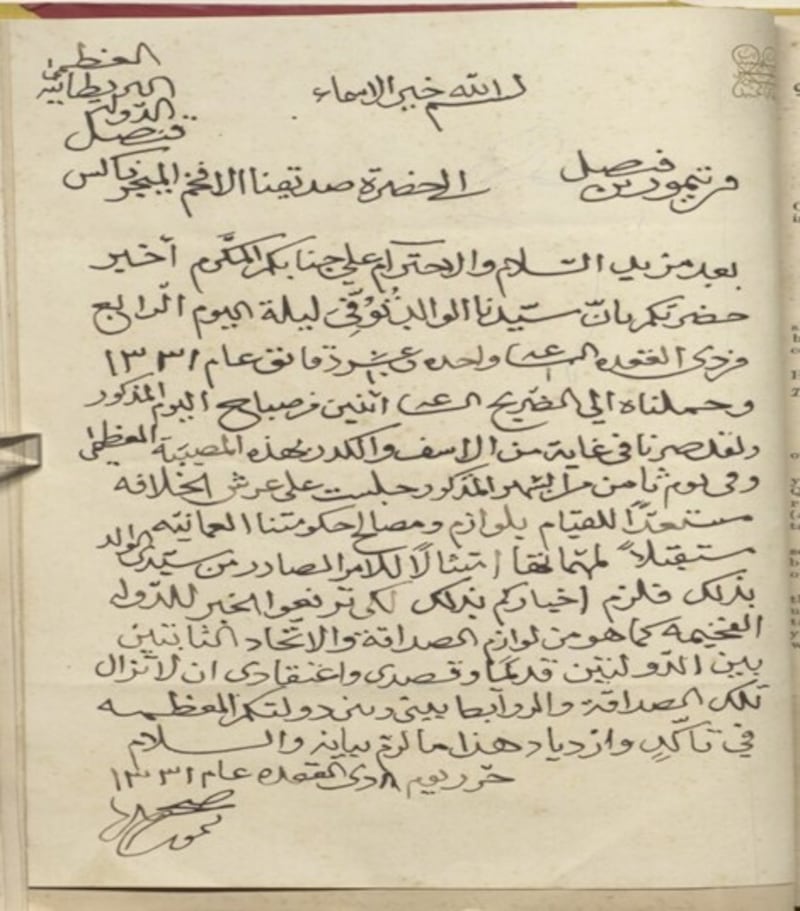 بسم الله خير الاسماء
من تيمور بن فيصل الى حضرة صديقنا الافخم الميجر ناكس
قنصل
الدولة
البريطانية
العظمى
بعد مزيد السّلام والاحترام على جنابكم المكّرم أخبر
حضرتكم بانّ سيّدنا الوالد تُوُفّي ليلة اليوم الرّابع
من ذى القعده الساعة واحده وعشر دقائق عام ١٣٣١
وحملناه الى الضّريح الساعة اثنين من صباح اليوم المذكور
ولقد صرنا في غاية من الاسف والكدر بهذه المصيبة العظمى
وفي يوم ثامن من الشهر المذكور جلست على عرش الخلافه
مستعدّاً للقيام بلوازم ومصالح حكومتنا العمانيّه
مستقبلاً لمهمّاتها امتثالًا للامر الصادر من سيّدى الوالد
بذلك فلزم اخباركم بذلك لكى ترفعوا الخبر للدّوله
الفخيمه كما هو من لوازم الصداقة والاتحاد الثابتين
بين الدّولتين قديمًا وقصدى واعتقادى ان لا تزال
تلك الصداقة والروابط بيني وبين دولتكم المعظمه
في تأكّدٍ وازدياد هذا ما لزم بيانه والسلام
حرّر يوم ٨ ذى القعده عام ١٣٣١
تيمور